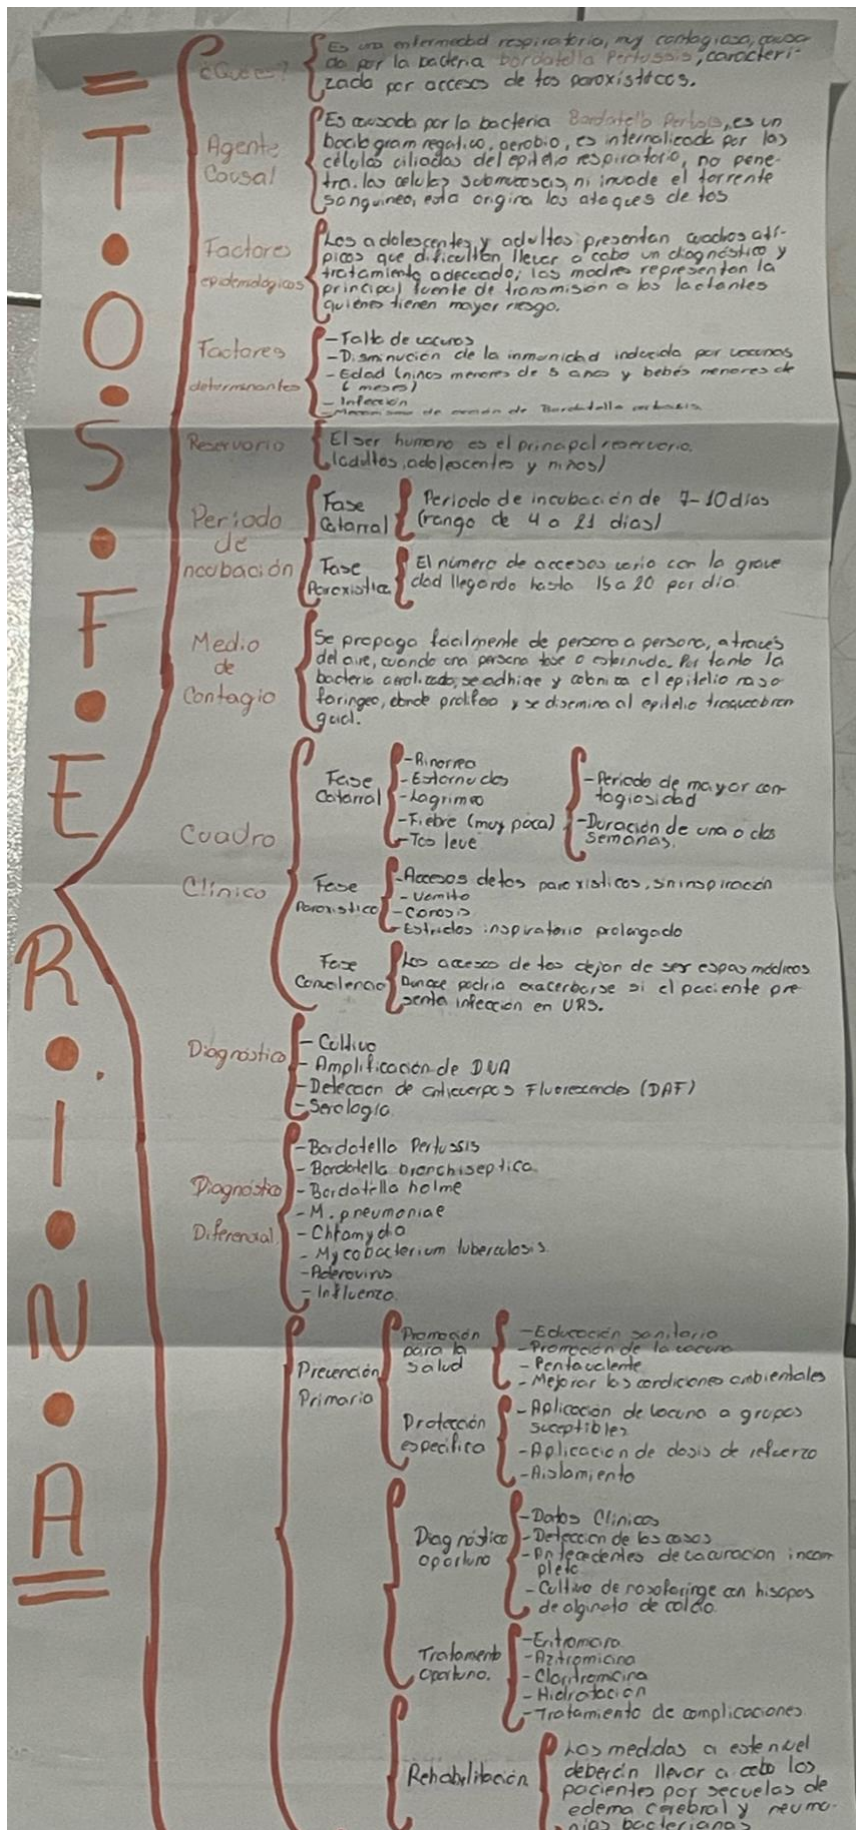 T.O.S.F.E.R.I.N.A
¿Que es?
Es una enfermedad respiratoria, muy contagiosa, causa-
da por la bacteria bordatella Pertussis, caracteri-
zada por accesos de tos paroxisticos.
Agente
Causal
Es causada por la bacteria Bordatella, es un
bacilo gram negativo, aerobio, es internalizada por las
células ciliadas del epitelio respiratorio, no pene-
tra las celulas submucosas, ni invade el torrente
sanguineo, esta origina los ataques de tos
Factores
epidemiológicos
Los adolescentes y adultos presentan cuadros atí-
picos que dificultan llevar a cabo un diagnóstico y
tratamiento adecuado; las madres representan la
principal fuente de transmisión a los lactantes
quienes tienen mayor riesgo.
Factores
determinantes
-Falta de vacunas
-Disminución de la inmunidad inducida por vacunas
-Edad (niños menores de 5 años y bebés menores de
6 meses)
-Infección
-Mecanismo de acción de Bordatella
Reservorio
El ser humano es el principal reservorio.
(adultos, adolescentes y niños)
Periodo
de
incubación
Fase
Catarral
Periodo de incubación de 7-10 días
(rango de 4 a 21 días)
Fase
Paroxistica
El número de accesos varia con la grave
dad llegando hasta 15 a 20 por día.
Medio
de
Contagio
Se propaga facilmente de persona a persona, a través
del aire, cuando una persona tose o estornuda. Por tanto la
bacteria aerolizada, se adhiere y coloniza el epitelio naso
faringeo, donde prolifera y se disemina al epitelio traqueobron
quial.
Cuadro
Clínico
Fase
Catarral
-Rinorrea
-Estornudos
-Lagrimeo
-Fiebre (muy poca)
-Tos leve
-Periodo de mayor con-
tagiosidad
-Duración de una o dos
semanas.
Fase
Paroxistica
-Accesos de tos paroxisticos, sin inspiración
-Vomito
-Cianosis
-Estridos inspiratorio prolongado
Fase
Los accesos de tos dejan de ser espasmódicos
Aunque podria exacerbarse si el paciente pre-
senta infección en URS.
Diagnóstico
-Cultivo
-Amplificación de DNA
-Detección de anticuerpos Fluorescendes (DAF)
-Serologia.
Diagnóstico
Diferencial
-Bordatella Pertussis
-Bordatella bronchiseptica
-Bordatella holme
-M. pneumoniae
-Chlamydia
-Mycobacterium tuberculosis
-Adenovirus
-Influenza.
Prevención
Primaria
Promoción
para la
salud
-Educación sanitaria
-Promoción de la vacuna
-Pentavalente
-Mejorar las condiciones ambientales
Protección
especifica
-Aplicación de vacuna a grupos
suceptibles
-Aplicacion de dosis de refuerzo
-Aislamiento
Diagnóstico
oportuno
-Datos Clinicos
-Deteccion de los casos
-Antecedentes de vacunacion incom
pleta
-Cultivo de nasofaringe con hisopos
de alginato de calcio.
Tratamiento
oportuno.
-Azitromicina
-Claritromicina
-Hidratacion
-Tratamiento de complicaciones
Rehabilitación
Las medidas a este nivel
deberán llevar a cabo los
pacientes por secuelas de
edema cerebral y neumo-
nias bacterianas